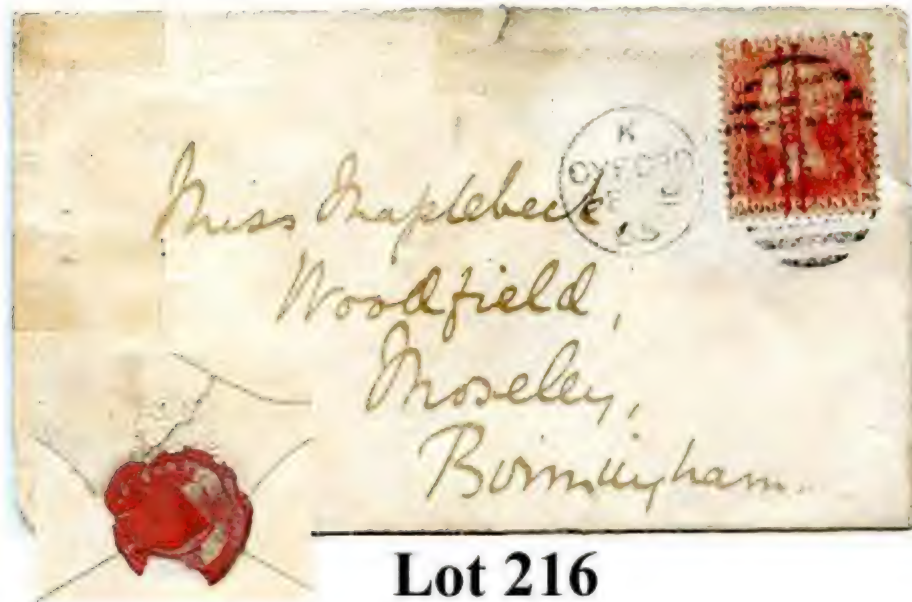 K
OXFORD
Miss Maplebeck
Woodfield,
Moseley,
Birmingham.
Lot 216